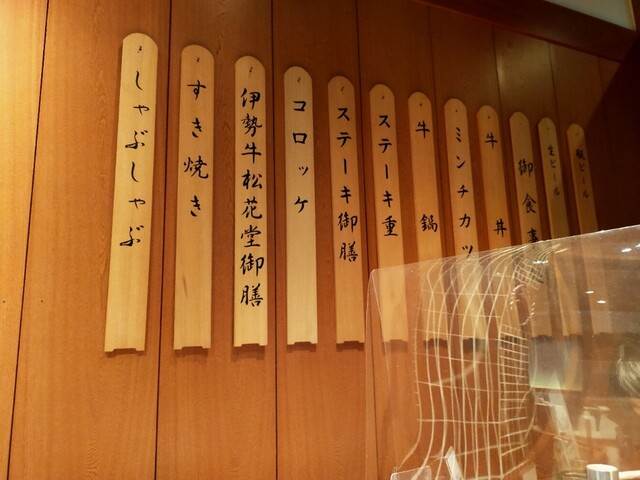 瓶ビール
生ビール
御食事
牛丼
ミンチカツ
牛鍋
ステーキ重
ステーキ御膳
コロッケ
伊勢牛松花堂御膳
すき焼き
しゃぶしゃぶ